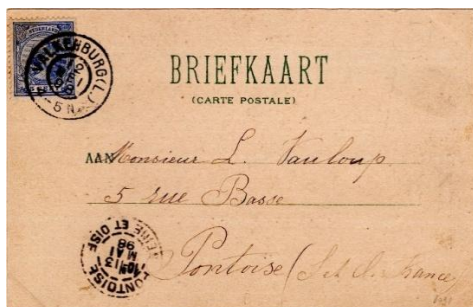 NEDERLAND
VALKENBURG (L.)
5 N
BRIEFKAART
(CARTE POSTALE)
AAN Monsieur L. Vauloup
5 rue Basse
Pontoise (S. et O. France
PONTOISE
SEINE ET OISE
13
MAI
98